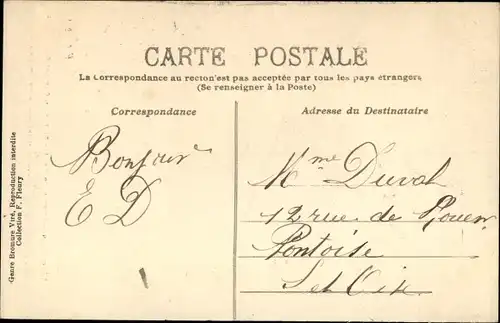 CARTE POSTALE
La Correspondance au recto n'est pas acceptée par tous les pays étrangers
(Se renseigner à la Poste)
Correspondance
Adresse du Destinataire
Bonjour
E D
Mme Duval
12 rue de Rouen
Pontoise
S et Oise
Genre Bromure Viré, Reproduction interdite
Collection F. Fleury